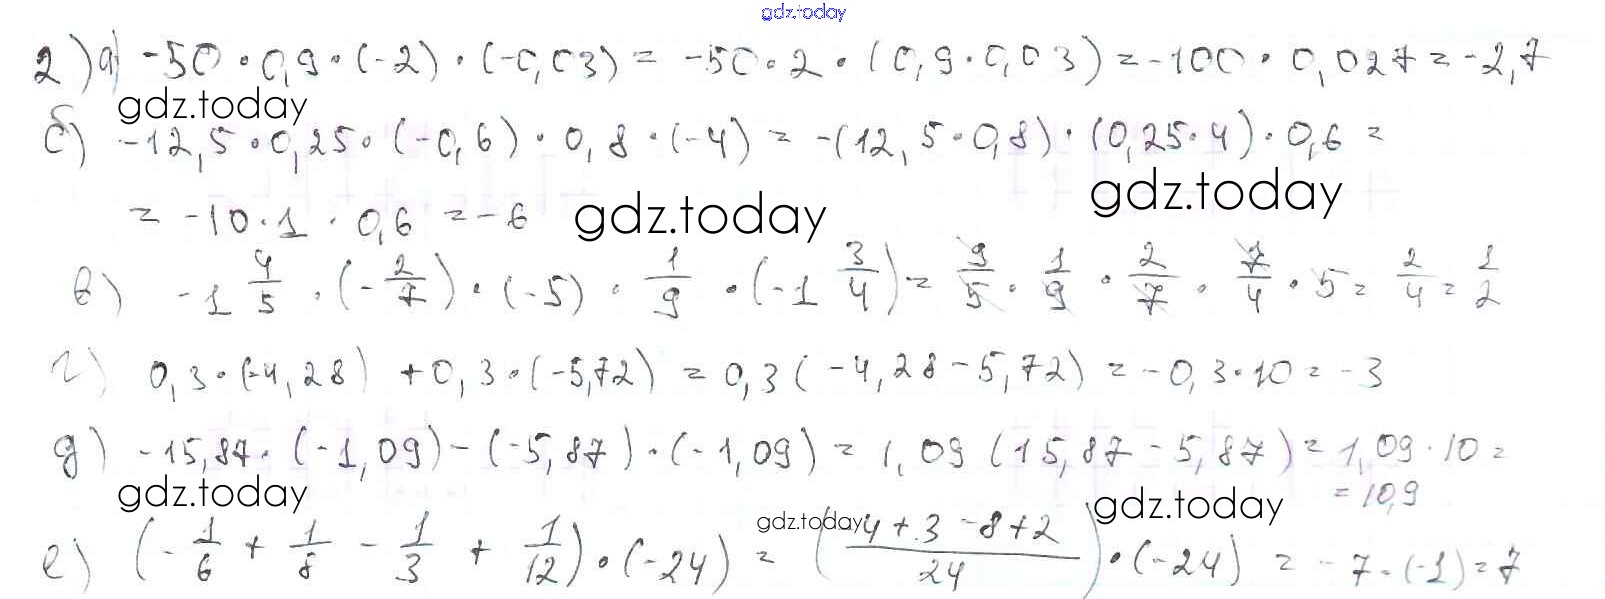 gdz.today
2) а) -50 · 0,9 · (-2) · (-0,03) = -50 · 2 · (0,9 · 0,03) = -100 · 0,027 = -2,7
gdz.today
б) -12,5 · 0,25 · (-0,6) · 0,8 · (-4) = -(12,5 · 0,8) · (0,25 · 4) · 0,6 =
gdz.today
= -10 · 1 · 0,6 = -6
gdz.today
в) -1 4/5 · (-2/7) · (-5) · 1/9 · (-1 3/4) = 9/5 · 1/9 · 2/7 · 7/4 · 5 = 2/4 = 1/2
г) 0,3 · (-4,28) + 0,3 · (-5,72) = 0,3 (-4,28 - 5,72) = -0,3 · 10 = -3
д) -15,87 · (-1,09) - (-5,87) · (-1,09) = 1,09 (15,87 - 5,87) = 1,09 · 10 =
= 10,9
gdz.today
gdz.today
gdz.today
е) (-1/6 + 1/8 - 1/3 + 1/12) · (-24) = (4 + 3 - 8 + 2 / 24) · (-24) = -7 · (-1) = 7